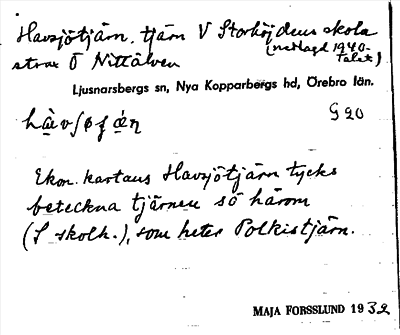 Havsjötjärn. tjärn V Storhöjdens skola
(nedlagd 1940-
talet)
strax Ö Nittälven
Ljusnarsbergs sn, Nya Kopparbergs hd, Örebro län.
G 20
Ekon. kartans Havsjötjärn tycks
beteckna tjärnen sö härom
(S skolh.), som heter Polkistjärn.
MAJA FORSSLUND 1932